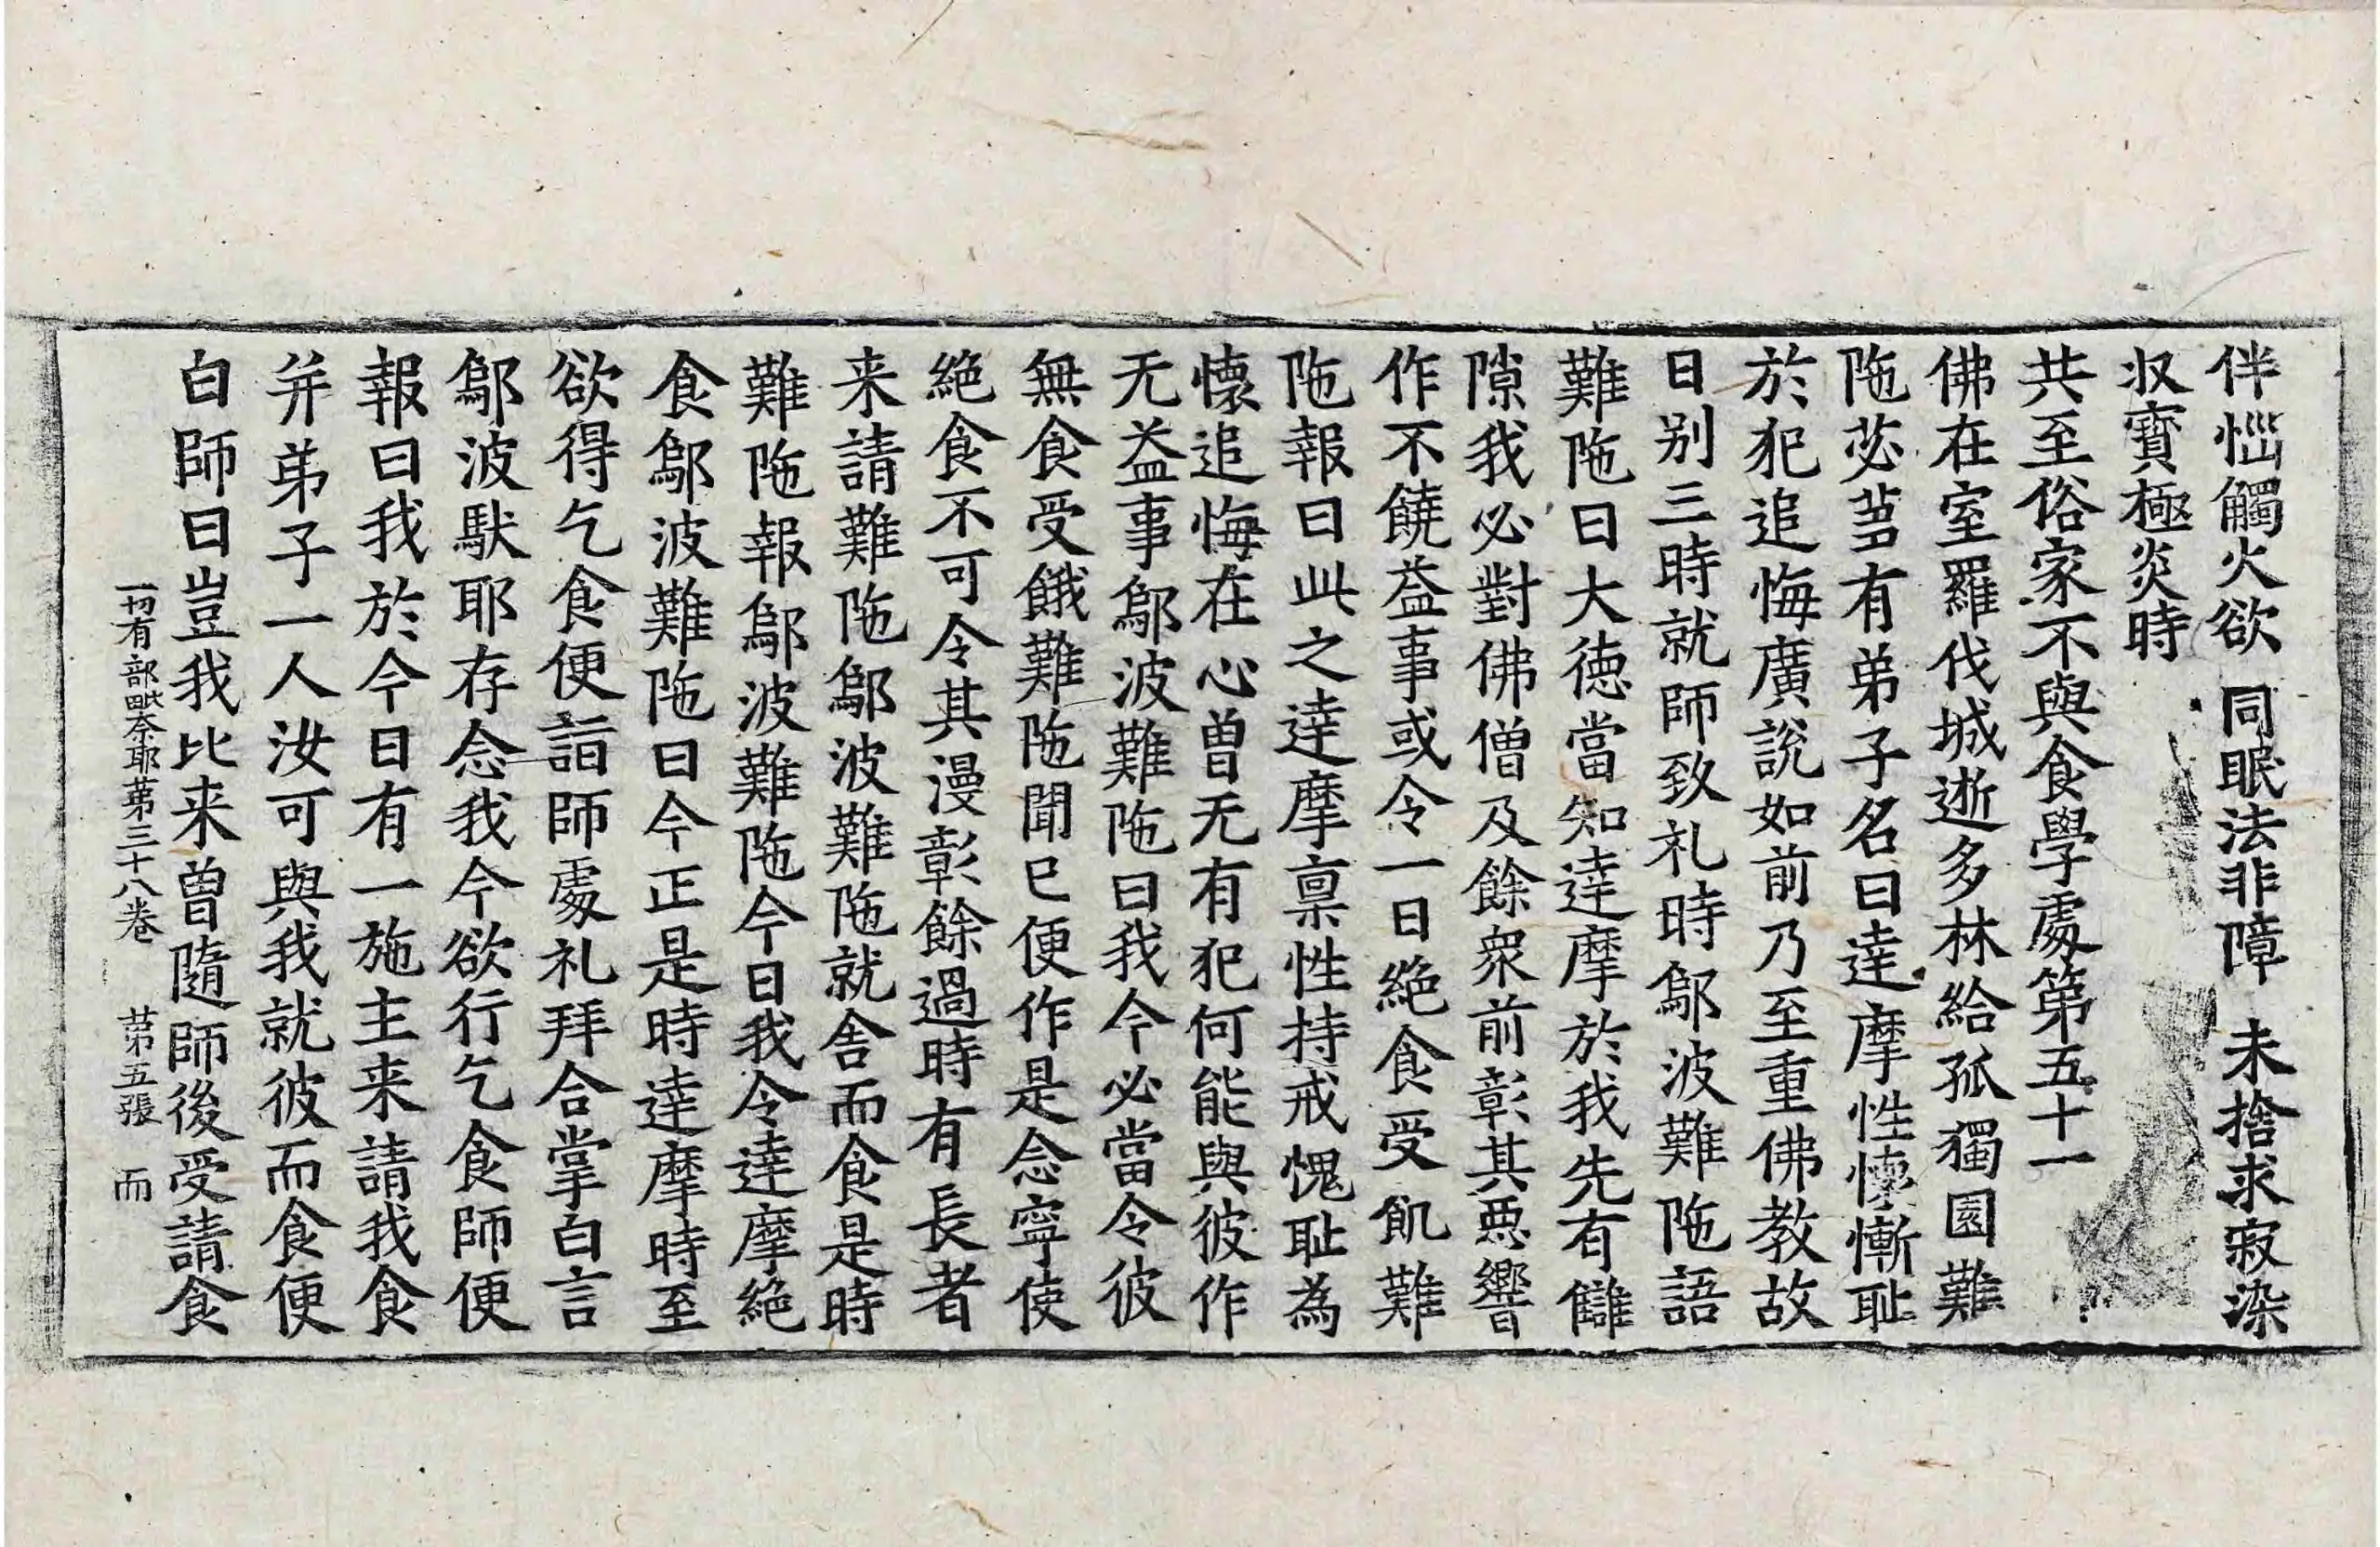 伴惱觸火欲　同眠法非障　未捨求寂染
収寶極炎時
共至俗家不與食學處第五十一
佛在室羅伐城逝多林給孤獨園難
陁苾芻有弟子名曰達摩性懷慚耻
於犯追悔廣說如前乃至重佛教故
日别三時就師致礼時鄔波難陁語
難陁曰大德當知達摩於我先有讎
隙我必對佛僧及餘衆前彰其惡響
作不饒益事或令一日絶食受飢難
陁報曰此之達摩稟性持戒愧耻為
懷追悔在心曽无有犯何能與彼作
无益事鄔波難陁曰我今必當令彼
無食受餓難陁聞已便作是念寧使
絶食不可令其漫彰餘過時有長者
来請難陁鄔波難陁就舍而食是時
難陁報鄔波難陁今日我令達摩絶
食鄔波難陁曰今正是時達摩時至
欲得乞食便詣師處礼拜合掌白言
鄔波馱耶存念我今欲行乞食師便
報曰我於今日有一施主来請我食
并弟子一人汝可與我就彼而食便
白師曰豈我比来曽隨師後受請食
一切有部毗奈耶苐三十八卷　苐五張　而